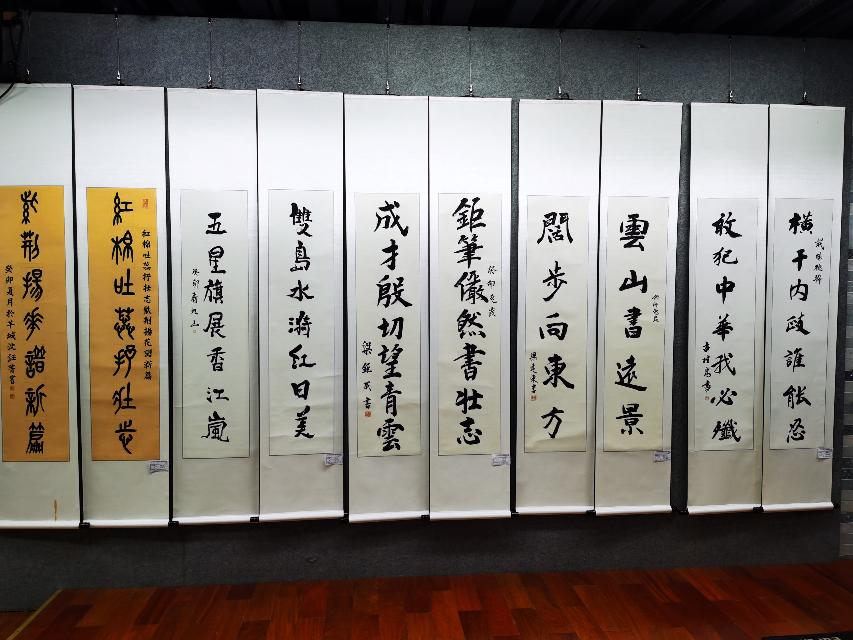 橫干內政誰能忍
敢犯中華我必殲
雲山書遠景
闊步向東方
鉅筆儼然書壯志
癸卯
成才殷切望青雲
梁鉅成書
雙島水漪紅日美
五星旗展香江嵐
癸卯
紅棉吐蕊抒壯志
紅棉吐蕊抒壯志紫荊揚花譜新篇
紫荊揚華譜新篇
癸卯夏月於羊城